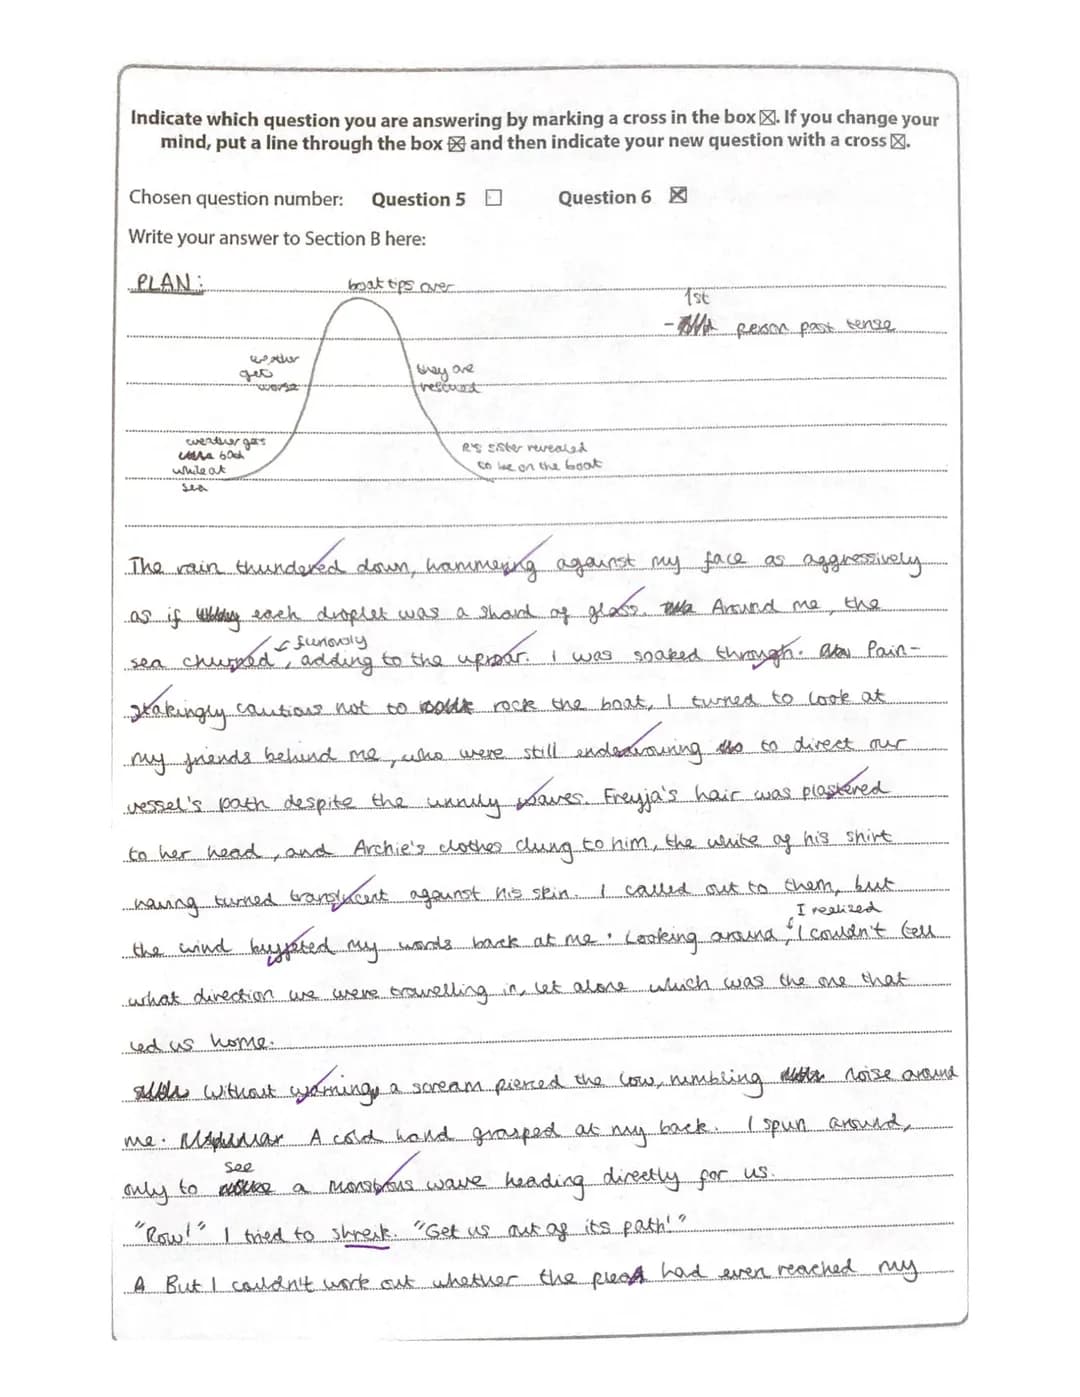 Indicate which question you are answering by marking a cross in the box ☒. If you change your
mind, put a line through the box and then indicate your new question with a cross ☒.
Chosen question number: Question 5 ☐ Question 6 ☒
Write your answer to Section B here:
PLAN:
boat tips over
1st
- person past tense
weather
gets
worse
they are
rescued
weather gets
bad
while at
sea
R's sister revealed
to be on the boat
The rain thundered down, hammering against my face as aggressively
as if each droplet was a shard of glass. Around me, the
furiously
sea churned, adding to the uproar. I was soaked through. Pain-
stakingly cautious not to rock the boat, I turned to look at
my friends behind me, who were still endeavouring to direct our
vessel's path despite the unruly waves. Freyja's hair was plastered
to her head, and Archie's clothes clung to him, the white of his shirt
having turned translucent against his skin. I called out to them, but
I realized
the wind buffeted my words back at me. Looking around, I couldn't tell
what direction we were travelling in, let alone which was the one that
led us home.
Without warning, a scream pierced the low, rumbling noise around
me. A cold hand grasped at my back. I spun around,
see
only to a monstrous wave heading directly for us.
"Row!" I tried to shreik. "Get us out of its path!"
But I couldn't work out whether the plea had even reached my